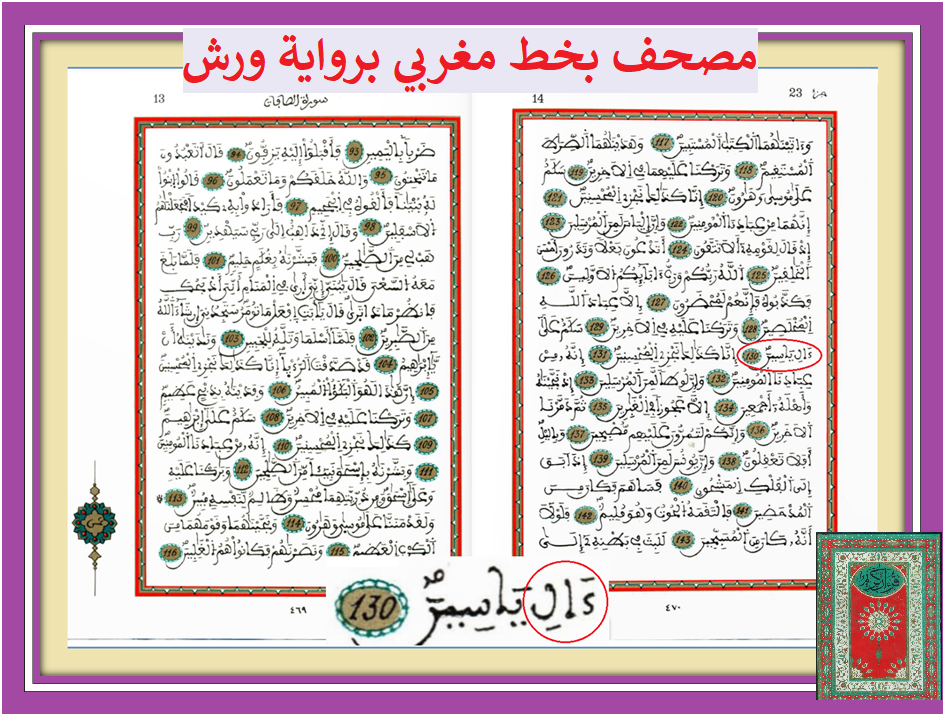 مصحف بخط مغربي برواية ورش
13
سورة الصافات
ضربا باليمين 93 فأقبلوا إليه يزفون 94 قال أتعبدون
ما تنحتون 95 والله خلقكم وما تعملون 96 قالوا ابنوا
له بنينا فألقوه في الجحيم 97 فأرادوا به كيدا فجعلنهم
الاسفلين 98 وقال إني ذاهب إلى ربي سيهدين 99 رب
هب لي من الصلحين 100 فبشرنه بغلم حليم 101 فلما بلغ
معه السعي قال يبني إني أرى في المنام أني أذبحك
فانظر ماذا ترى قال يأبت افعل ما تومر ستجدني إن شاء الله
من الصبرين 102 فلما أسلما وتله للجبين 103 وندينه أن
يإبرهيم 104 قد صدقت الرءيا إنا كذلك نجزي المحسنين
105 إن هذا لهو البلؤا المبين 106 وفدينه بذبح عظيم
107 وتركنا عليه في الاخرين 108 سلم على إبرهيم
109 كذلك نجزي المحسنين 110 إنه من عبادنا المومنين
111 وبشرنه بإسحق نبيئا من الصلحين 112 وبركنا عليه
وعلى إسحق ومن ذريتهما محسن وظالم لنفسه مبين 113
ولقد مننا على موسى وهرون 114 ونجينهما وقومهما من
الكرب العظيم 115 ونصرنهم فكانوا هم الغلبين 116
٤٦٩
14
23
وءاتينهما الكتب المستبين 117 وهدينهما الصرط
المستقيم 118 وتركنا عليهما في الاخرين 119 سلم
على موسى وهرون 120 إنا كذلك نجزي المحسنين 121
إنهما من عبادنا المومنين 122 وإن إلياس لمن المرسلين 123
إذ قال لقومه ألا تتقون 124 أتدعون بعلا وتذرون أحسن
الخلقين 125 الله ربكم ورب ءابائكم الاولين 126
فكذبوه فإنهم لمحضرون 127 إلا عباد الله
المخلصين 128 وتركنا عليه في الاخرين 129 سلم على
ءال ياسين 130 إنا كذلك نجزي المحسنين 131 إنه من
عبادنا المومنين 132 وإن لوطا لمن المرسلين 133 إذ نجينه
وأهله أجمعين 134 إلا عجوزا في الغبرين 135 ثم دمرنا
الاخرين 136 وإنكم لتمرون عليهم مصبحين 137 وباليل
أفلا تعقلون 138 وإن يونس لمن المرسلين 139 إذ ابق
إلى الفلك المشحون 140 فساهم فكان من
المدحضين 141 فالتقمه الحوت وهو مليم 142 فلولا
أنه كان من المسبحين 143 للبث في بطنه إلى
٤٧٠
ءال ياسين 130